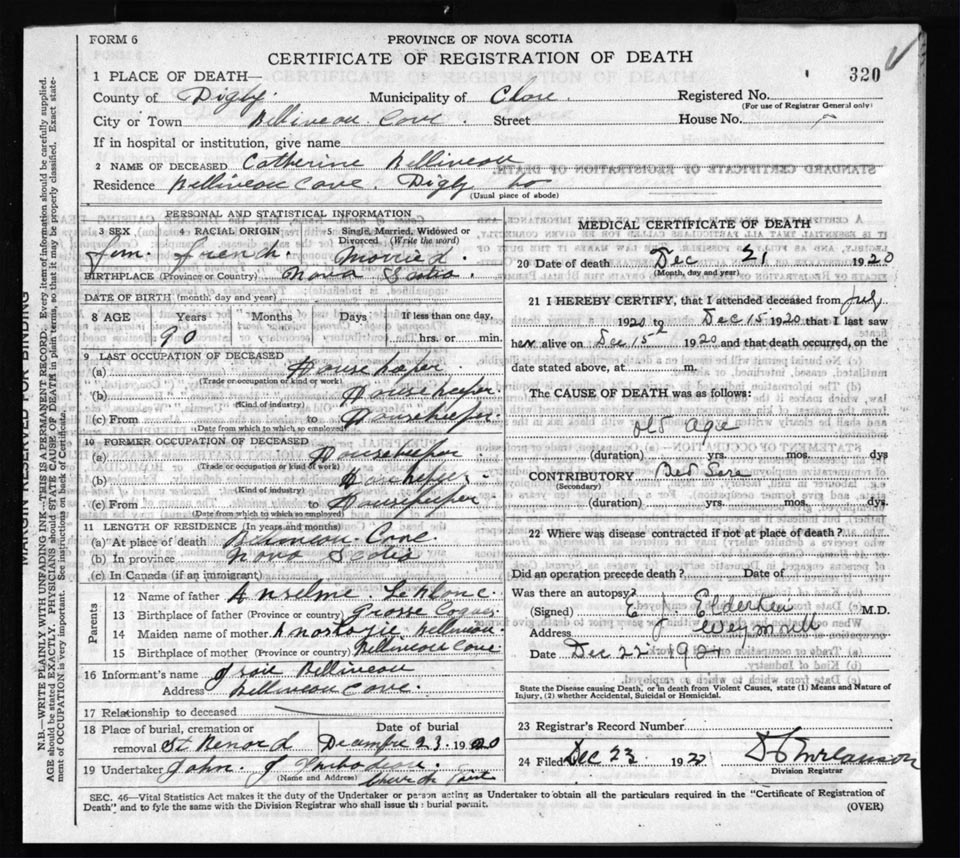 FORM 6
PROVINCE OF NOVA SCOTIA
CERTIFICATE OF REGISTRATION OF DEATH
320
1 PLACE OF DEATH—
County of Digby. Municipality of Clare. Registered No.
(For use of Registrar General only)
City or Town Belliveau Cove. Street House No.
If in hospital or institution, give name
2 NAME OF DECEASED Catherine Belliveau
Residence Belliveau Cove. Digby Co
(Usual place of abode)
PERSONAL AND STATISTICAL INFORMATION
3 SEX 4 RACIAL ORIGIN 5 Single, Married, Widowed or Divorced (Write the word)
Fem. French. Married.
BIRTHPLACE (Province or Country) Nova Scotia.
DATE OF BIRTH (month, day and year)
8 AGE Years Months Days If less than one day,
90 hrs. or min.
9 LAST OCCUPATION OF DECEASED
(a) Housekeeper
(Trade or occupation or kind or work)
(b) Housekeeper.
(Kind of industry)
(c) From to Housekeeper.
(Date from which to which so employed)
10 FORMER OCCUPATION OF DECEASED
(a) Housekeeper
(Trade or occupation or kind of work)
(b) Housekeeper
(Kind of industry)
(c) From to Housekeeper
(Date from which to which so employed)
11 LENGTH OF RESIDENCE (In years and months)
(a) At place of death Belliveau Cove.
(b) In province Nova Scotia
(c) In Canada (if an immigrant)
Parents
12 Name of father Anselme LeBlanc.
13 Birthplace of father (Province or country) Grosse Coques
14 Maiden name of mother Belliveau.
15 Birthplace of mother (Province or country) Belliveau Cove
16 Informant's name Belliveau
Address Belliveau Cove.
17 Relationship to deceased
18 Place of burial, cremation or removal St Benard Date of burial Decembre 23. 1920
19 Undertaker John. J
(Name and Address) Church Point
MEDICAL CERTIFICATE OF DEATH
20 Date of death Dec 21 1920
(Month, day and year)
21 I HEREBY CERTIFY, that I attended deceased from July
1920 to Dec 15 1920 that I last saw
her alive on Dec 15 1920 and that death occurred, on the
date stated above, at m.
The CAUSE OF DEATH was as follows:
Old Age
(duration) yrs. mos. dys
CONTRIBUTORY Bed Sore
(Secondary)
(duration) yrs. mos. dys.
22 Where was disease contracted if not at place of death?
Did an operation precede death? Date of
Was there an autopsy?
(Signed) E J Elderkin M.D.
Address Weymouth
Date Dec 22 192
State the Disease causing Death, or in death from Violent Causes, state (1) Means and Nature of
Injury, (2) whether Accidental, Suicidal or Homicidal.
23 Registrar's Record Number
24 Filed Dec 23 1920
Division Registrar
SEC. 46—Vital Statistics Act makes it the duty of the Undertaker or person acting as Undertaker to obtain all the particulars required in the "Certificate of Registration of
Death" and to fyle the same with the Division Registrar who shall issue the burial permit. (OVER)
MARGIN RESERVED FOR BINDING
N.B.—WRITE PLAINLY WITH UNFADING INK—THIS IS A PERMANENT RECORD. Every item of information should be carefully supplied.
AGE should be stated EXACTLY. PHYSICIANS should STATE CAUSE OF DEATH in plain terms, so that it may be properly classified. Exact state-
ment of OCCUPATION is very important. See instructions on back of Certificate.